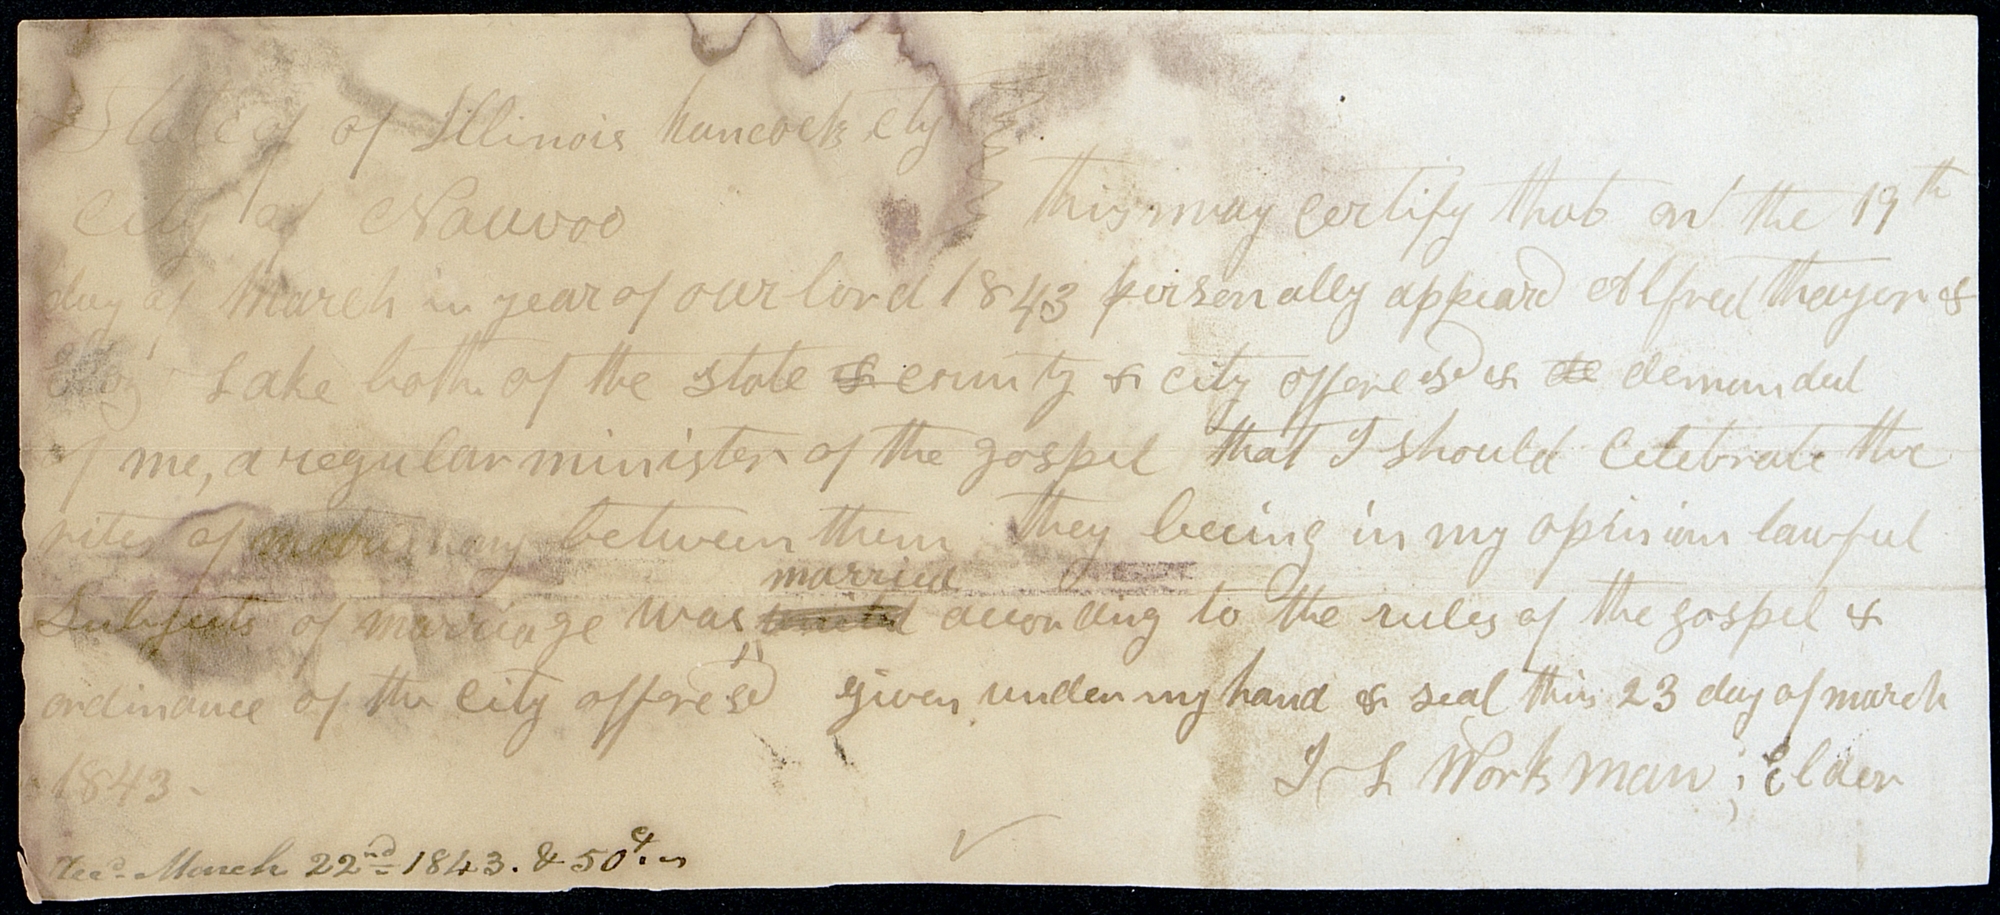 State of of Illinois hancock cty
City of Nauvoo this may certify that on the 19th
day of March in year of our lord 1843 personally appeard Alfred thayer &
Lake both of the state & county & city offoresd & de demanded
of me, a regular minister of the gospel that I should celebrate the
rites of matrimony between them they beeing in my opinion lawful
married
Subjects of marriage was united according to the rules of the gospel &
ordinance of the city offoresd given under my hand & seal this 23 day of march
1843-
J L Workman ; Elder
Recd March 22nd 1843. & 50 cts